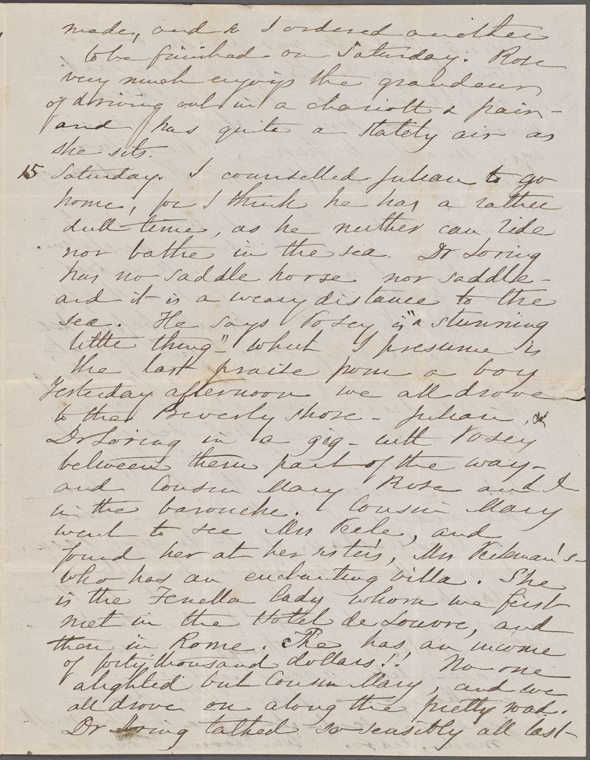 made, and so I ordered another
to be finished on Saturday. Rose
very much enjoys the grandeur
of driving out in a chariott & pair -
and has quite a stately air as
she sits.
15 Saturday. I counselled Julian to go
home, for I think he has a rather
dull time, as he neither can ride
nor bathe in the sea. Dr Loring
has no saddle horse nor saddle -
and it is a weary distance to the
sea. He says Posey is "a stunning
little thing" - which I presume is
the last praise from a boy
Yesterday afternoon we all drove
to the Beverly shore - Julian, &
Dr Loring in a gig - with Posey
between them part of the way -
and Cousin Mary Rose and I
in the barouche. Cousin Mary
went to see Mrs and
found her at her sisters, Mrs
who has an enchanting villa. She
is the Fenella lady whom we first
met in the Hotel de Louvre, and
then in Rome. She has an income
of forty thousand dollars!! No one
alighted but Cousin Mary, and we
all drove on along the pretty road.
Dr Loring talked so sensibly all last